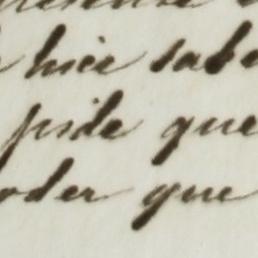 hice sabe
pide que
oder que